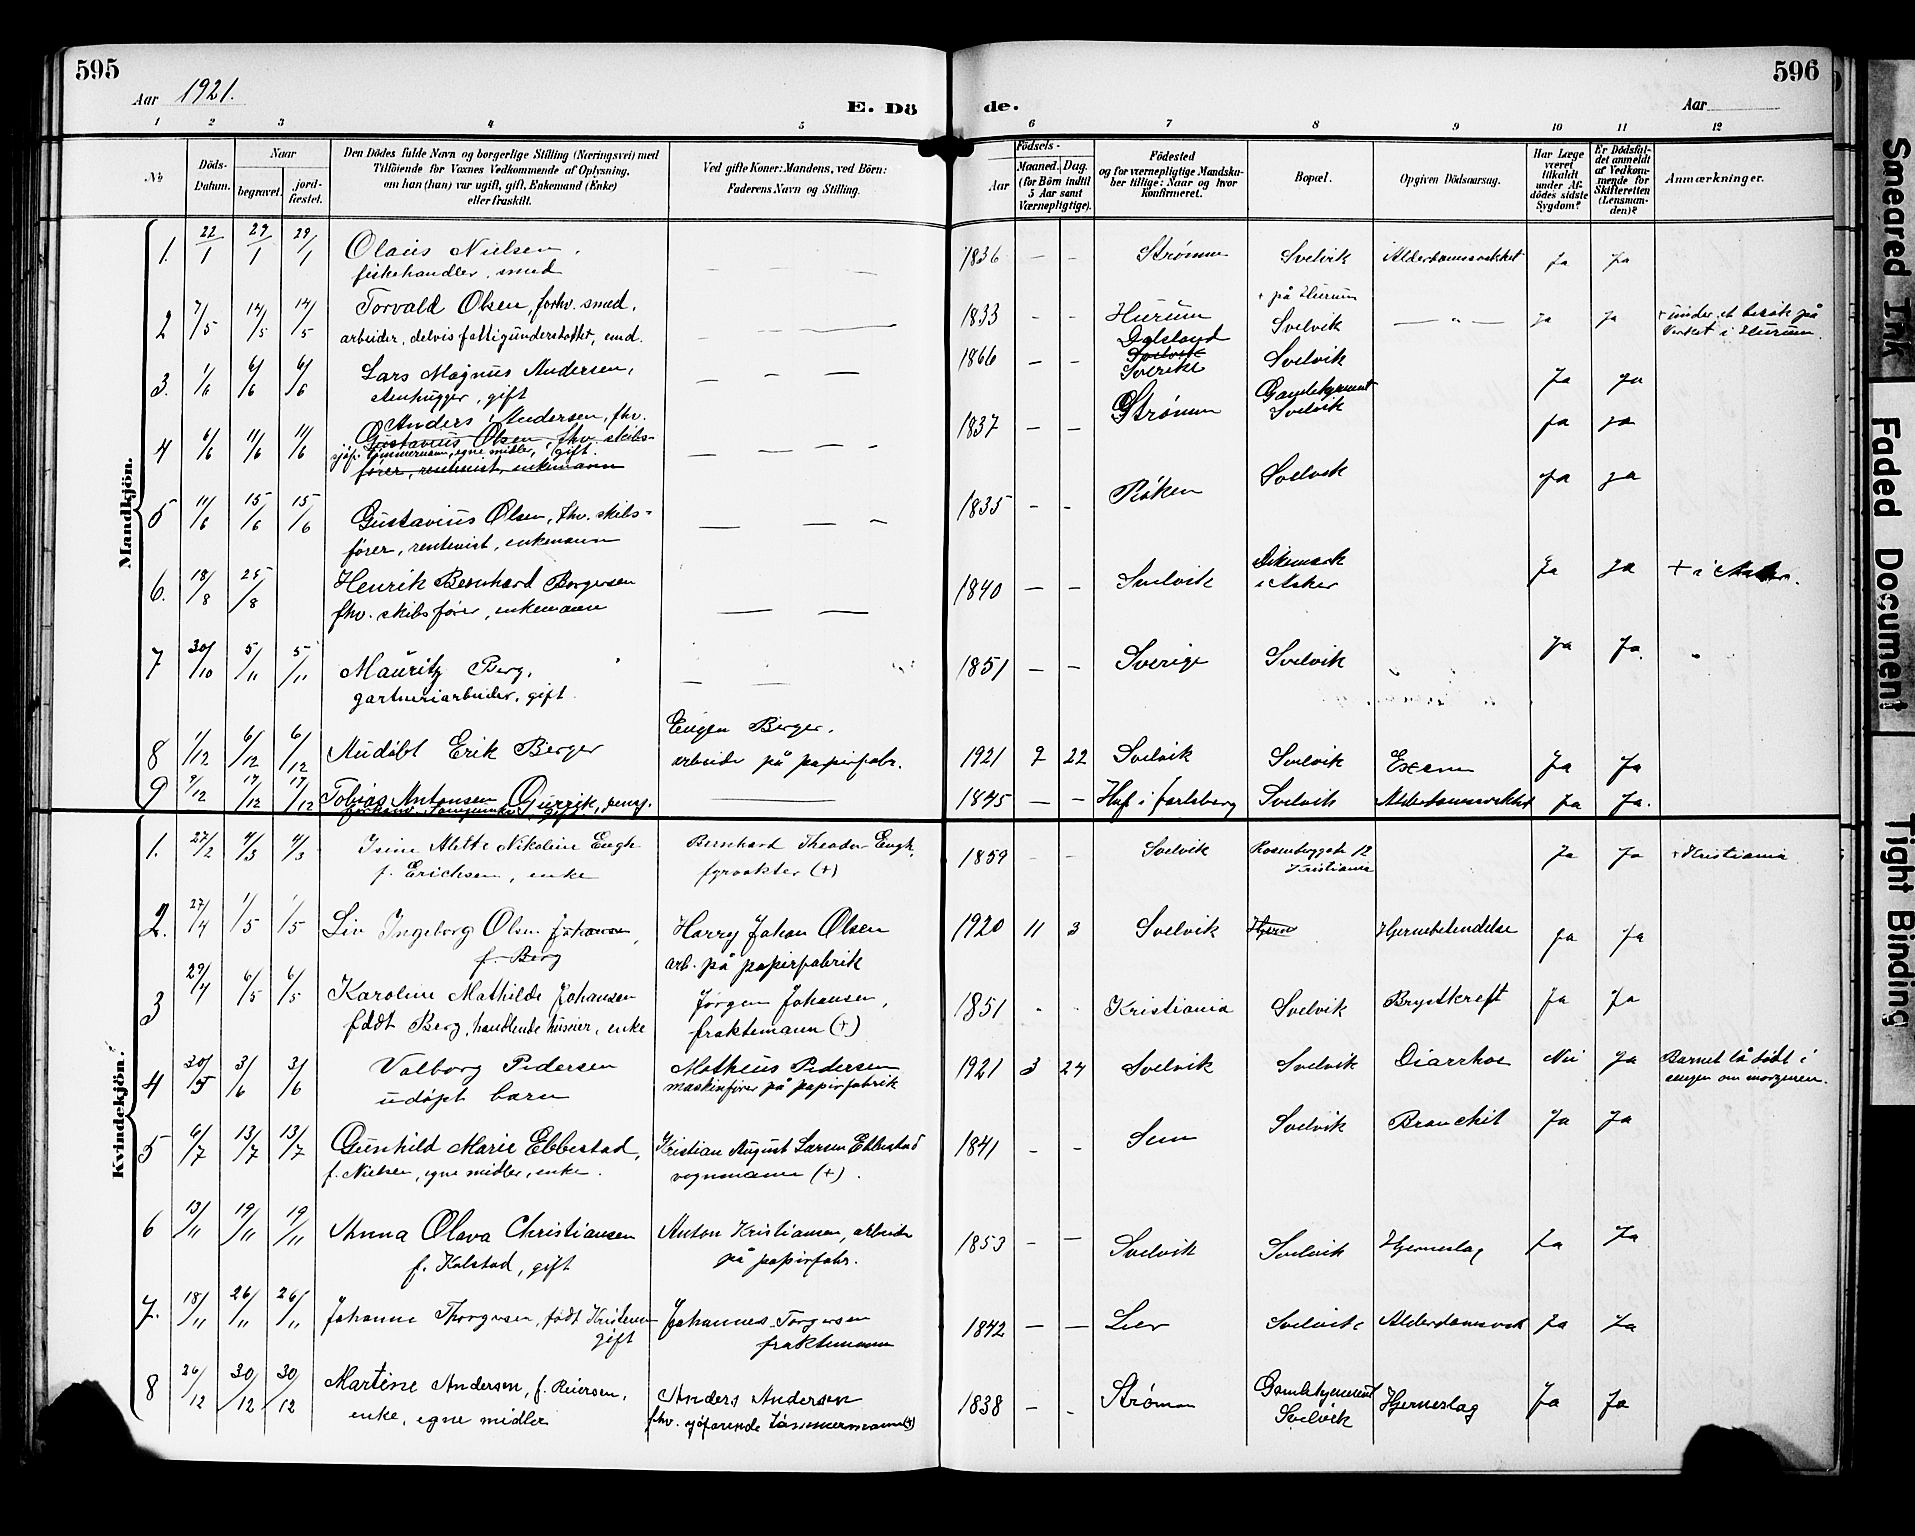 595
Aar 1921.
E. Dö
de.
596
Aar
1 2 3 4 5 6 7 8 9 10 11 12
No
Döds-
Datum.
Naar
begravet.
jord-
fæstet.
Den Dödes fulde Navn og borgerlige Stilling (Næringsvei) med
Tilföiende for Voxnes Vedkommende af Oplysning,
om han (hun) var ugift, gift, Enkemand (Enke)
eller fraskilt.
Ved gifte Koner: Mandens, ved Börn:
Faderens Navn og Stilling.
Födsels-
Aar
Maaned. Dag.
(for Börn indtil
5 Aar samt
Værnepligtige).
Födested
og for værnepligtige Mandska-
ber tillige: Naar og hvor
konfirmeret.
Bopæl.
Opgiven Dödsaarsag.
Har Læge
været
tilkaldt
under Af-
dödes sidste
Sygdom?
Er Dödsfal-
det anmeldt
af Vedkom-
mende for
Skifteretten
(Lensman-
den)?
Anmærkninger.
Mandkjön.
1. 22/1 29/1 29/1 Olaus Nielsen, — — — 1836 — — Strømm Svelvik Alderdomssvekket Ja Ja
fiskehandler, smed
2 7/5 14/5 14/5 Torvald Olsen, forhv. smed, — — 1833 — — Hurum + på Hurum Svelvik — " — Ja Ja + under et besøk på
arbeider, delvis fattigunderstøttet, Verket i Hurum.
3. 1/6 6/6 6/6 Lars Magnus Andersen, — — — 1866 — — Dalsland Svelvik Sverike Svelvik Ja Ja
stenhugger, gift
4 6/6 11/6 11/6 Anders Andersen, fhv. — — — 1837 — — Strømm Gamlekjement Svelvik Ja Ja
Gustavius Olsen, fhv. skibs-
sjøf. tømmermann, egne midler, gift.
fører, rentenist, enkemann
5 11/6 15/6 15/6 Gustavius Olsen, fhv. skibs- — — — 1835 — — Røken Svelvik Ja Ja
fører, rentenist, enkemann
6. 18/8 25/8 Henrik Bernhard Borgersen — — 1840 — — Svelvik Dikemark i Asker Ja Ja + i Asker.
fhv. skibsfører, enkemann
7 30/10 5/11 5/11 Mauritz Berg, — — 1851 — — Sverige Svelvik Ja Ja
gartneriarbeider, gift.
8 1/12 6/12 6/12 Audøbt Erik Berger Eugen Berger, 1921 9 22 Svelvik Svelvik Exem Ja Ja
arbeider på papirfabr.
9 9/12 17/12 17/12 Tobias Antonsen Gurrik, — 1845 — — Hof i Jarlsberg Svelvik Alderdomssvekket Ja Ja.
Kvindekjön.
1. 27/2 4/3 4/3 Isine Alette Nikoline Engh Bernhard Theodor Engh, 1859 - - Svelvik Rosenborggt 12 Ja Ja + Kristiania
f. Erichsen, enke fyrvokter (+) Kristiania
2. 27/4 1/5 1/5 Liv Ingeborg Olsen Johansen, Harry Johan Olsen 1920 11 3 Svelvik Hjern Hjernebetendelse Ja Ja
f. Berg arb. på papirfabrik
3 29/4 6/5 6/5 Karoline Mathilde Johansen Jørgen Johansen, 1851 - - Kristiania Svelvik Brystkreft Ja Ja
født Berg, handlende huseier, enke fraktemann (+)
4 30/5 3/6 3/6 Valborg Pedersen Matheus Pedersen 1921 3 24 Svelvik Svelvik Diarrhoe Nei Ja Barnet lå dødt i
udøpt barn maskinfører på papirfabrik sengen om morgenen.
5 6/7 13/7 13/7 Gunhild Marie Ebbestad, Kristian August Larsen Ebbestad 1841 - - Sem Svelvik Bronchit Ja Ja
f. Nielsen, egne midler, enke. vognmann (+).
6 13/11 19/11 19/11 Anna Olava Christiansen Anton Kristiansen, arbeider 1853 - — Svelvik Svelvik Hjerneslag Ja Ja
f. Kolstad, gift på papirfabr.
7. 18/11 26/11 26/11 Johanne Thorgersen, født Kristensen Johannes Torgersen 1842 — — Lier Svelvik Alderdomssvek Ja Ja
gift fraktemann
8 26/12 30/12 30/12 Martine Andersen, f. Reiersen, Anders Andersen 1838 — - Strømm Gamlekjement Hjerneslag Ja Ja
enke, egne midler fhv. sjøfarende tømmermann (+) Svelvik
Smeared Ink
Faded Document
Tight Binding